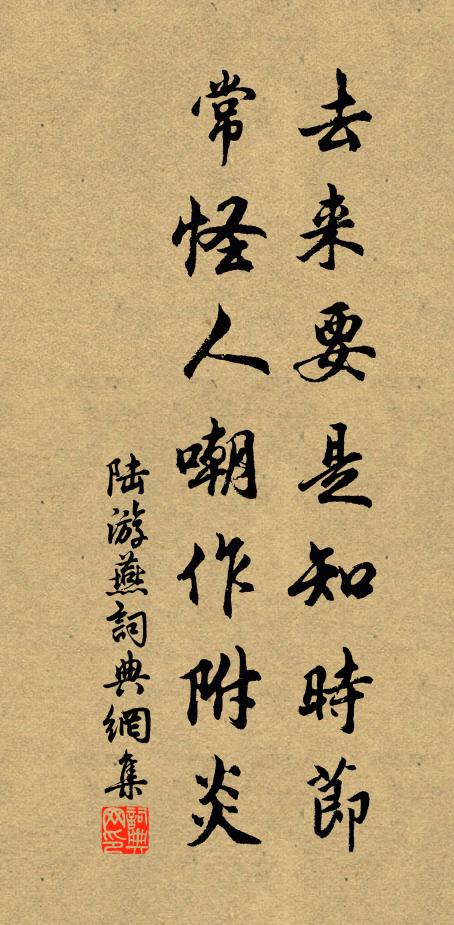 去来要是知時節
常怪人嘲作附炎
陆游燕詞典網集
詞典網印